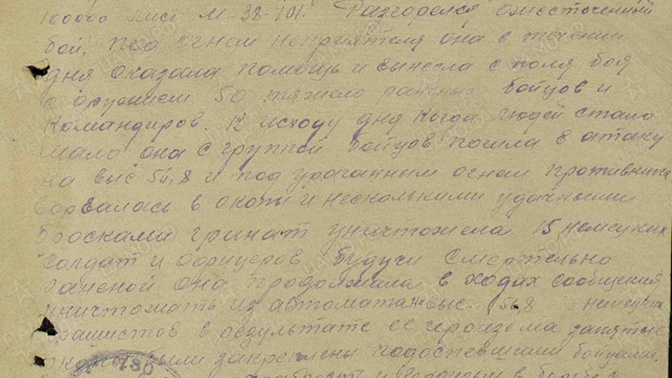 10000 лист М-38-101. Разгорелся ожесточенный
бой. Под огнем неприятеля она в течении
дня оказала помощь и вынесла с поля боя
с оружием 50 тяжело раненых бойцов и
командиров. К исходу дня когда людей стало
мало она с группой бойцов пошла в атаку
на выс 56,8 и под ураганным огнем противника
ворвалась в окопы и несколькими удачными
бросками гранат уничтожила 15 немецких
солдат и офицеров. Будучи смертельно
раненой она продолжала в ходах сообщений
уничтожать из автомата на выс. 56,8 немецких
фашистов в результате ее героизма занятые
были закреплены подоспевшими бойцами.
и героизм в борьбе